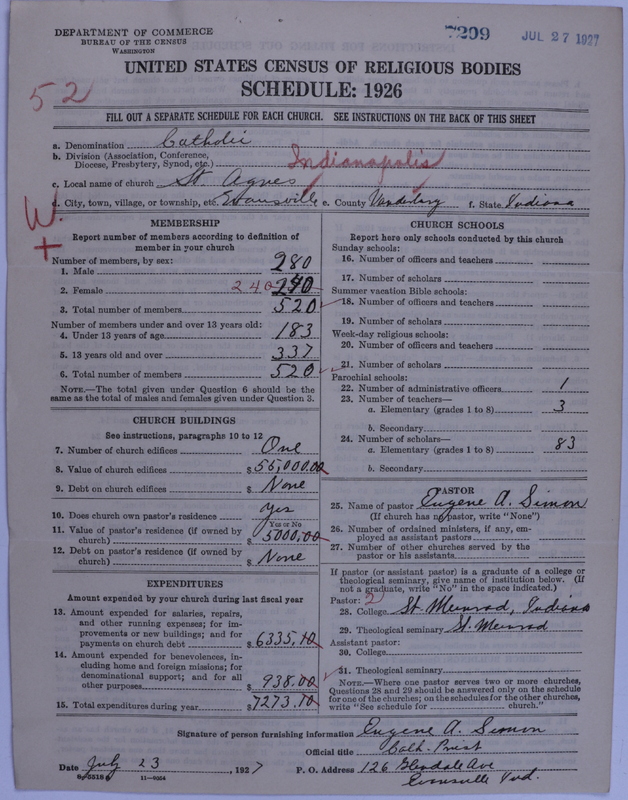 DEPARTMENT OF COMMERCE
BUREAU OF THE CENSUS
WASHINGTON
7209 JUL 27 1927
UNITED STATES CENSUS OF RELIGIOUS BODIES
SCHEDULE: 1926
52
FILL OUT A SEPARATE SCHEDULE FOR EACH CHURCH. SEE INSTRUCTIONS ON THE BACK OF THIS SHEET
a. Denomination Catholic
b. Division (Association, Conference, Diocese, Presbytery, Synod, etc.) Indianapolis
c. Local name of church St. Agnes
d. City, town, village, or township, etc. Evansville e. County Vanderburg f. State Indiana
W.
+
MEMBERSHIP
Report number of members according to definition of member in your church
Number of members, by sex:
1. Male 280
2. Female 240 240
3. Total number of members 520
Number of members under and over 13 years old:
4. Under 13 years of age 183
5. 13 years old and over 337
6. Total number of members 520
NOTE.—The total given under Question 6 should be the same as the total of males and females given under Question 3.
CHURCH BUILDINGS
See instructions, paragraphs 10 to 12
7. Number of church edifices One
8. Value of church edifices $ 56,000.00
9. Debt on church edifices $ None
10. Does church own pastor's residence yes
Yes or No
11. Value of pastor's residence (if owned by church) $ 5000.00
12. Debt on pastor's residence (if owned by church) $ None
EXPENDITURES
Amount expended by your church during last fiscal year
13. Amount expended for salaries, repairs, and other running expenses; for improvements or new buildings; and for payments on church debt $ 6335.10
14. Amount expended for benevolences, including home and foreign missions; for denominational support; and for all other purposes $ 938.00
15. Total expenditures during year $ 7273.10
CHURCH SCHOOLS
Report here only schools conducted by this church
Sunday schools:
16. Number of officers and teachers
17. Number of scholars
Summer vacation Bible schools:
18. Number of officers and teachers
19. Number of scholars
Week-day religious schools:
20. Number of officers and teachers
21. Number of scholars
Parochial schools:
22. Number of administrative officers 1
23. Number of teachers—
a. Elementary (grades 1 to 8) 3
b. Secondary
24. Number of scholars—
a. Elementary (grades 1 to 8) 83
b. Secondary
PASTOR
25. Name of pastor Eugene A. Simon
(If church has no pastor, write "None")
26. Number of ordained ministers, if any, employed as assistant pastors
27. Number of other churches served by the pastor or his assistants
If pastor (or assistant pastor) is a graduate of a college or theological seminary, give name of institution below. (If not a graduate, write "No" in the space indicated.)
Pastor: 2
28. College St. Meinrad, Indiana
29. Theological seminary St. Meinrad
Assistant pastor:
30. College
31. Theological seminary
NOTE.—Where one pastor serves two or more churches, Questions 28 and 29 should be answered only on the schedule for one of the churches; on the schedules for the other churches, write "See schedule for church."
Signature of person furnishing information Eugene A. Simon
Official title Cath. Priest
Date July 23 1927 P. O. Address 126 Glendale Ave
Evansville Ind.
8-5518 11-9054